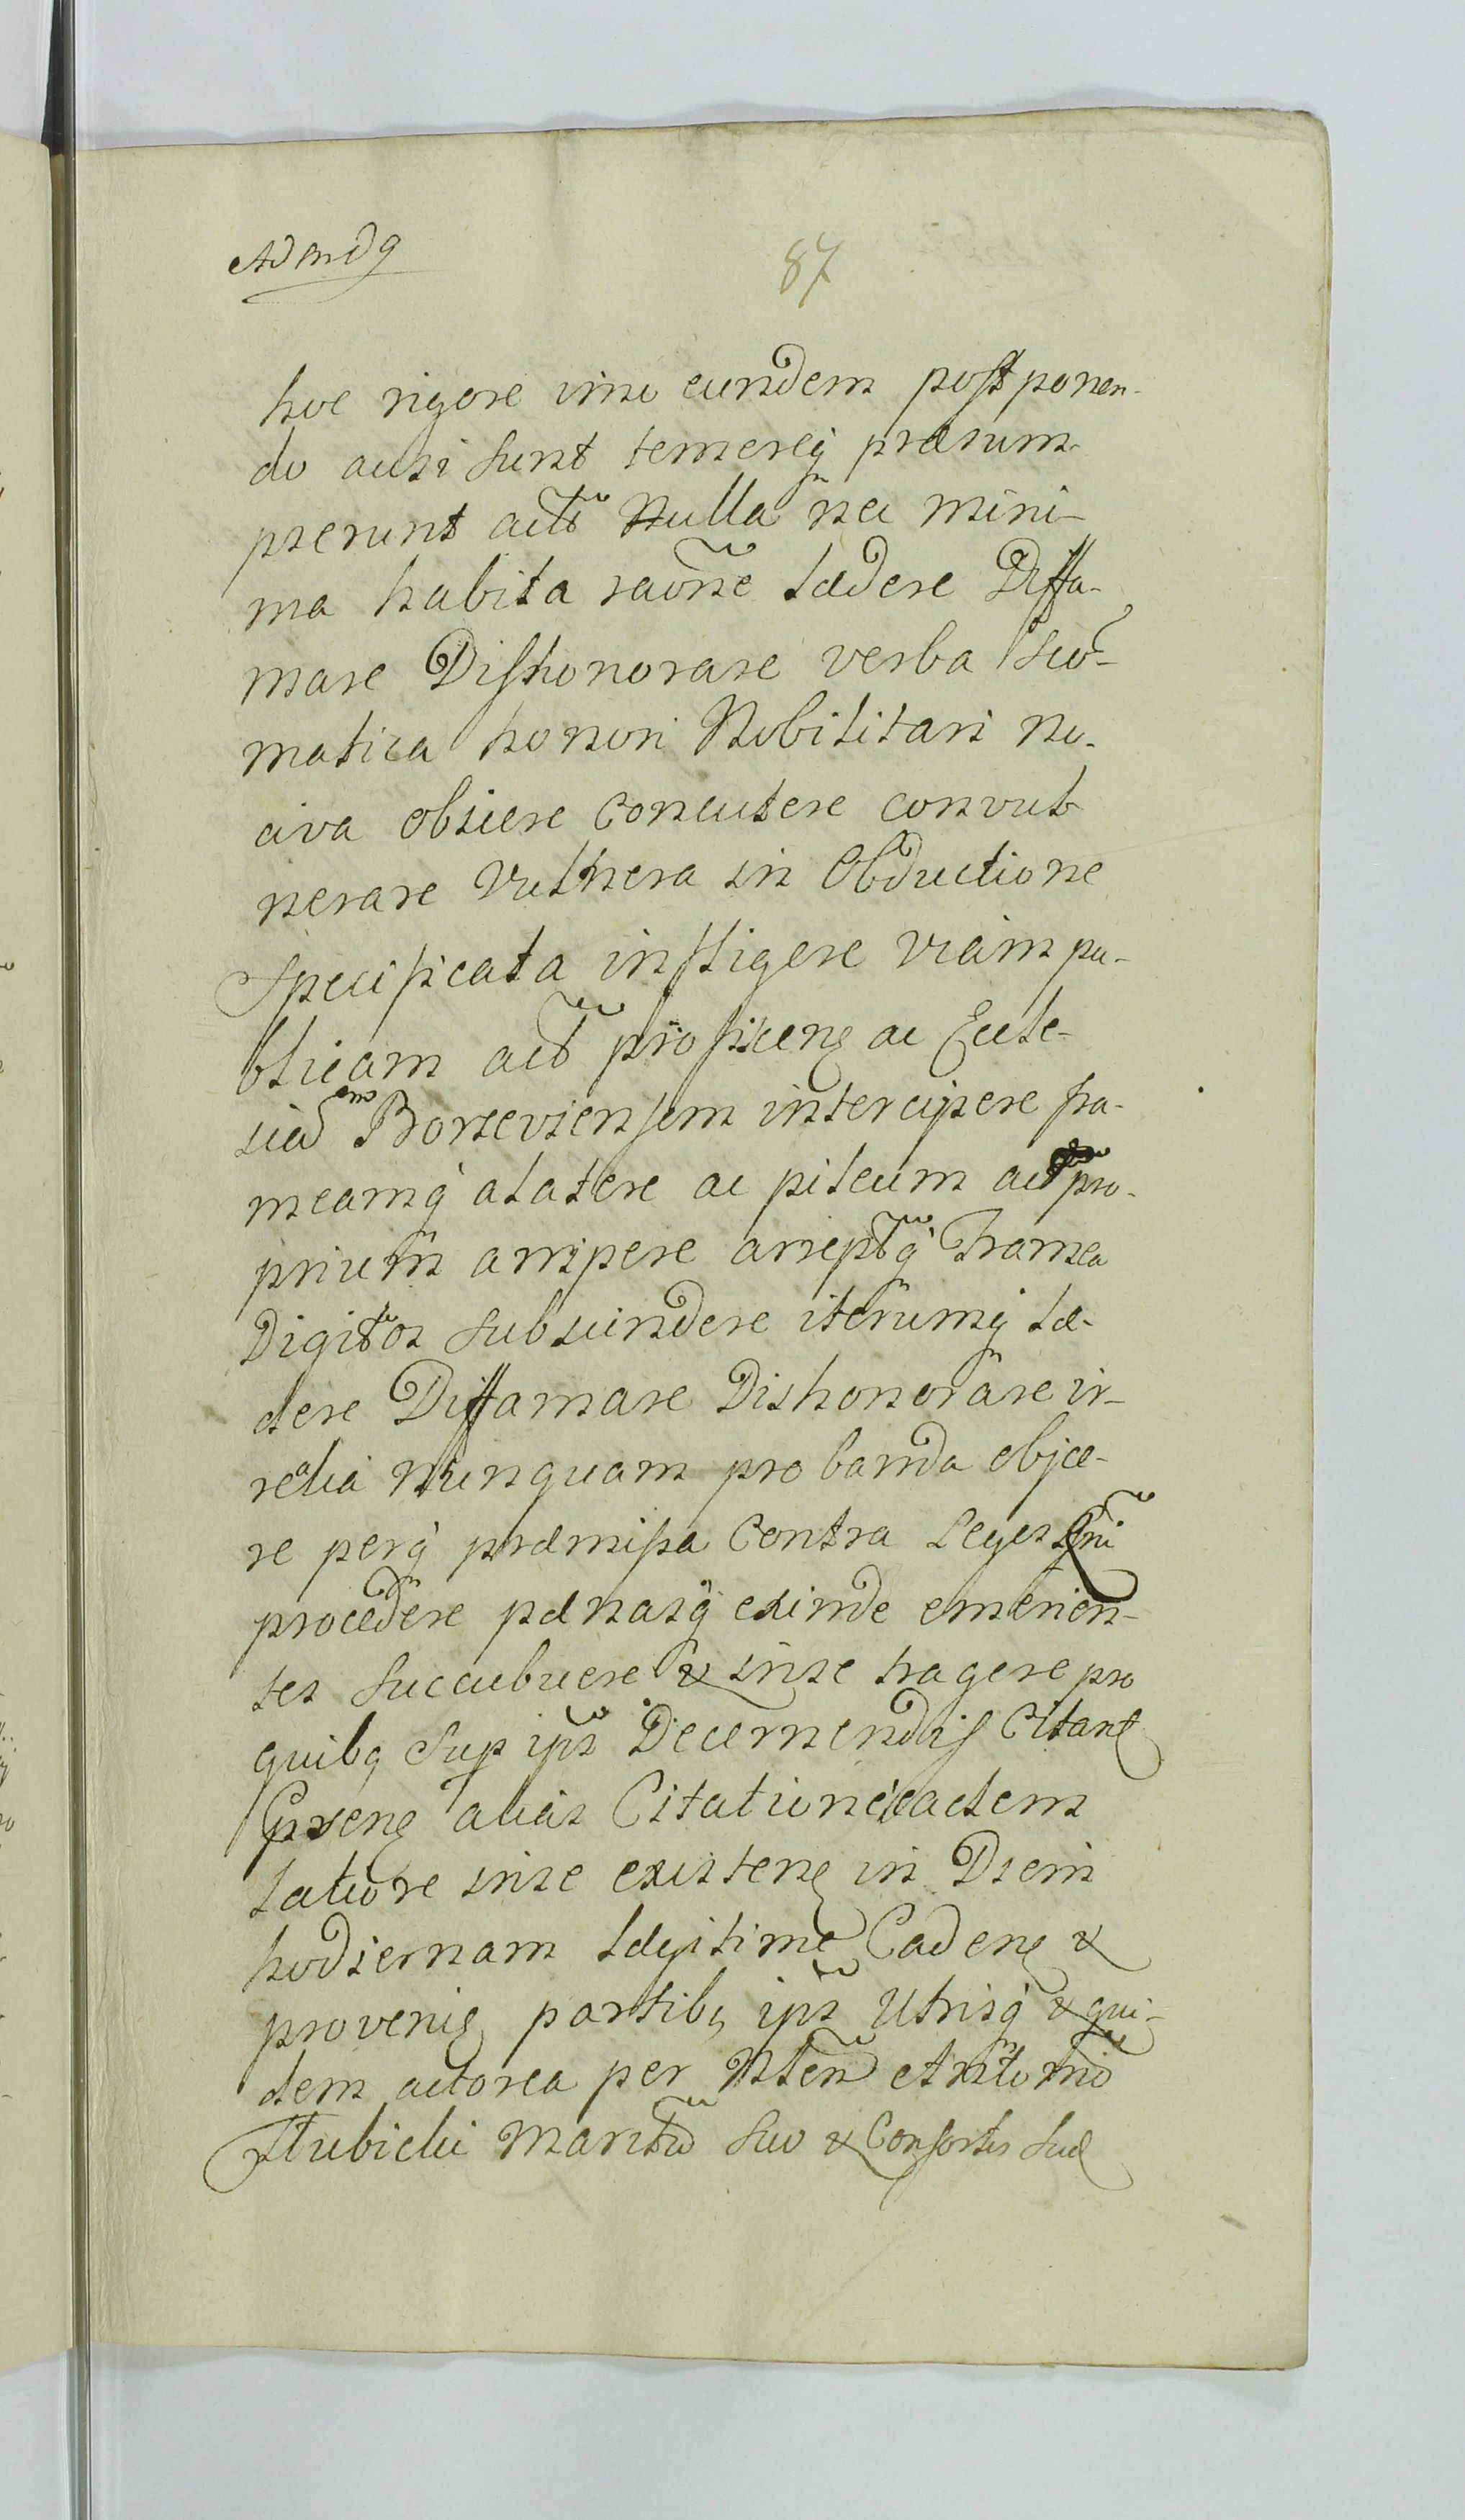 87
hoc rigore imo eundem postponen-
do ausi sunt temereq́ præsum-
pserunt actô Nulla ña mini-
ma habita raõne lædere Diffa-
mare Dishonorare verba scõ-
matica honori Nobilitari no-
civa obiicere Concutere convul-
nerare Vulnera in Obductione
Specificata infligere viam pu-
blicam act̃ proficiens ac Eccle-
siam Borzeviensem intercipere fra-
meamq́ a latere ac pileum act̃ pro-
prium arripere areptaq́ framea
Digitos subscindere iterumq́ læ-
dere Diffamare Dishonorare ir-
realia Nunquam probanda objice-
re perq́ præmissa Contra Leges Gñi
procedere pænasq́ exinde emerien-
tes succubuere & in se tragere pro
quibq Sup ip̃s Decernendis Citant
Gprens alias Citatione eadem
latiore in se existens in Diem
hodiernam legitime Cadens &
proveniens partibq ip̃s Utrisq́ & qui-
dem actorea per Nlem Antoniũ
Hubicki Maritũ suũ & Consortis suæ